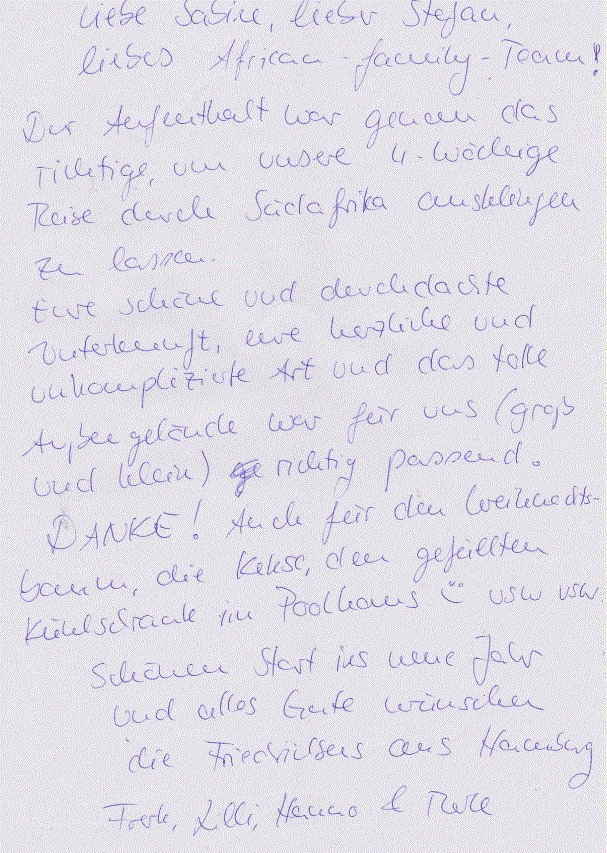 Liebe Sabine, lieber Stefan,
liebes African-family-Team!
Der Aufenthalt war genau das
richtige, um unsere 4-wöchige
Reise durch Südafrika ausklingen
zu lassen.
Eure schöne und durchdachte
Unterkunft, eure herzliche und
unkomplizierte Art und das tolle
Außengelände war für uns (groß
und klein) richtig passend.
DANKE! Auch für den Weihnachts-
baum, die Kekse, den gefüllten
Kühlschrank im Poolhaus usw usw.
Schönen Start ins neue Jahr
und alles Gute wünschen
die aus
Lilli, Hanno &